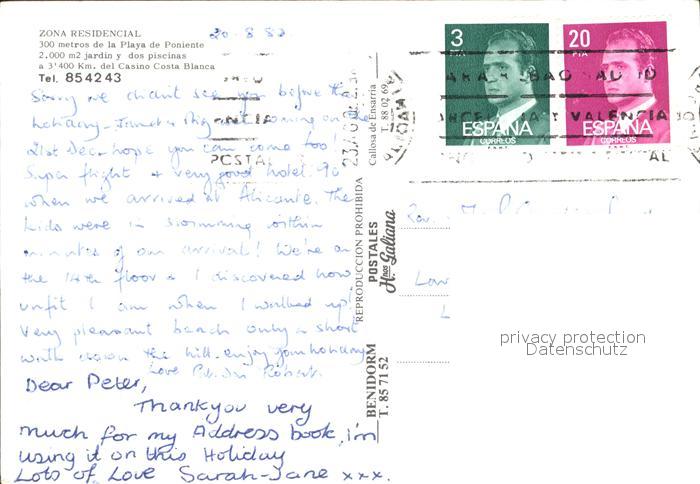 ZONA RESIDENCIAL
300 metros de la Playa de Poniente
2.000 m2 jardin y dos piscinas
a 3'400 Km. del Casino Costa Blanca
Tel. 854243
20-8-82
Sorry we didn't see you before the
holiday - coming on the
21st Dec. hope you can come too!
Super flight & very good hotel. 90
when we arrived at Alicante. The
kids were in swimming within
minutes of our arrival! We're on
the 14th floor & I discovered how
unfit I am when I walked up!
Very pleasant beach only a short
walk down the hill. enjoy your holiday
Love Robert
Dear Peter,
Thankyou very
much for my Address book, i'm
using it on this Holiday
Lots of Love Sarah-Jane xxx.
Callosa de Ensarria
T. 88 02 69
REPRODUCCION PROHIBIDA
POSTALES
Hnos Galiana
BENIDORM
T. 85 71 52
POSTAL
3
PTA
ESPAÑA
CORREOS
20
PTA
ESPAÑA
CORREOS
VALENCIA
privacy protection
Datenschutz